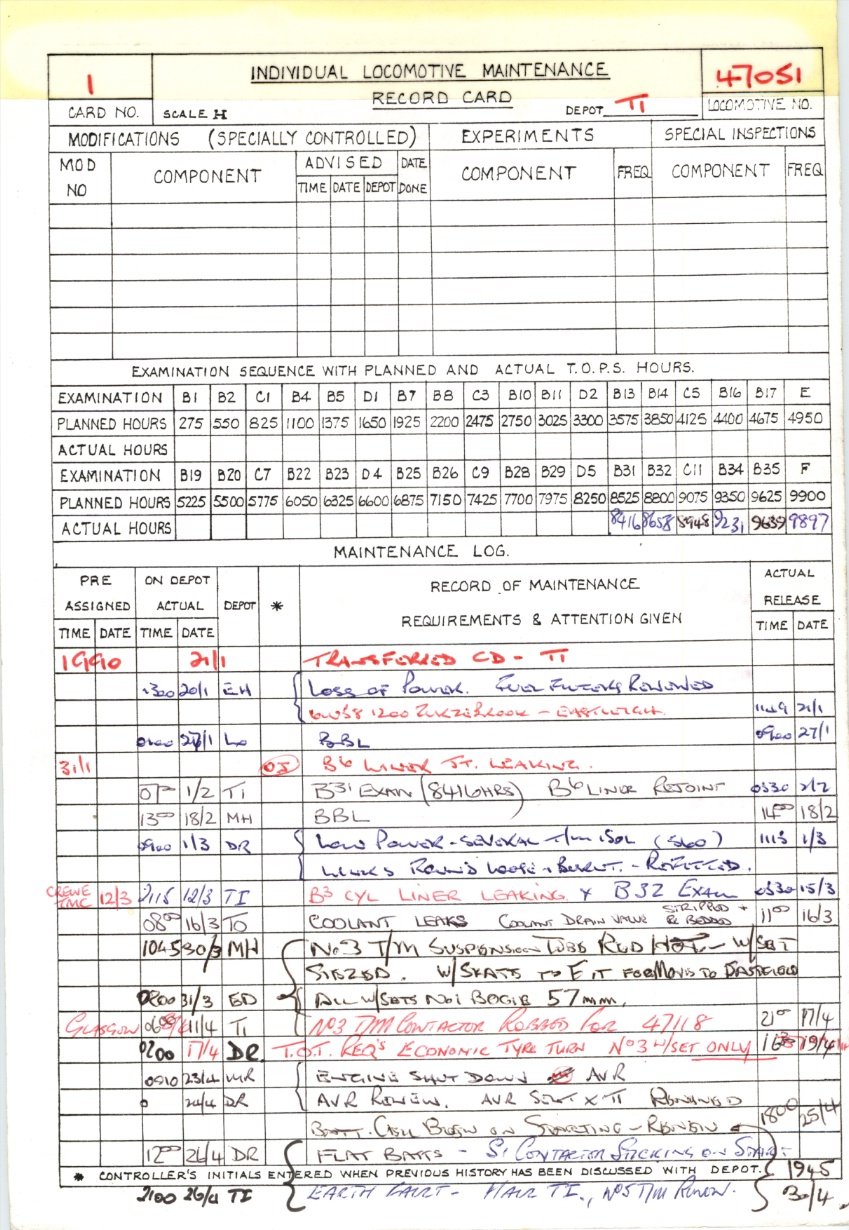 1
INDIVIDUAL LOCOMOTIVE MAINTENANCE
RECORD CARD
47051
CARD NO. SCALE H DEPOT TI LOCOMOTIVE NO.
MODIFICATIONS (SPECIALLY CONTROLLED) EXPERIMENTS SPECIAL INSPECTIONS
MOD NO COMPONENT ADVISED DATE DONE COMPONENT FREQ COMPONENT FREQ
TIME DATE DEPOT
EXAMINATION SEQUENCE WITH PLANNED AND ACTUAL T.O.P.S. HOURS.
EXAMINATION B1 B2 C1 B4 B5 D1 B7 B8 C3 B10 B11 D2 B13 B14 C5 B16 B17 E
PLANNED HOURS 275 550 825 1100 1375 1650 1925 2200 2475 2750 3025 3300 3575 3850 4125 4400 4675 4950
ACTUAL HOURS
EXAMINATION B19 B20 C7 B22 B23 D4 B25 B26 C9 B28 B29 D5 B31 B32 C11 B34 B35 F
PLANNED HOURS 5225 5500 5775 6050 6325 6600 6875 7150 7425 7700 7975 8250 8525 8800 9075 9350 9625 9900
ACTUAL HOURS 8416 8658 8948 9231 9639 9897
MAINTENANCE LOG.
PRE ASSIGNED ON DEPOT ACTUAL DEPOT * RECORD OF MAINTENANCE ACTUAL RELEASE
REQUIREMENTS & ATTENTION GIVEN
TIME DATE TIME DATE TIME DATE
1990 21/1 TRANSFERRED CD - TI
20/1 EH LOSS OF POWER. FUEL FILTERS RENEWED
1200 FURZEBROOK - EASTLEIGH. 1149 21/1
27/1 BBL 0900 27/1
31/1 B6 LINER JT. LEAKING.
1/2 TI B31 EXAM (8416HRS) B6 LINER REJOINT 0330 2/2
1300 18/2 MH BBL 1400 18/2
0900 1/3 DR LOW POWER - SEVERAL T/M ISOL 1113 1/3
LOOSE + BURNT. -
CREWE TMC 12/3 2115 12/3 TI B3 CYL LINER LEAKING + B32 EXAM 0330 15/3
0800 16/3 TO COOLANT LEAKS COOLANT DRAIN VALVE STRIPPED + RE BEDDED 1100 16/3
1045 30/3 MH No3 T/M SUSPENSION TUBE RED HOT - W/SET
SIEZED. W/SKATES TO FIT FOR MOVE TO
0200 31/3 ALL W/SETS No1 BOGIE 57mm.
GLASGOW 11/4 TI No3 T/M CONTACTOR ROBBED FOR 47118 2100 17/4
0200 17/4 DR T.O.T. REQ'S ECONOMIC TYRE TURN No3 W/SET ONLY 19/4
0910 23/4 MR ENGINE SHUT DOWN AVR
24/4 DR AVR RENEW. AVR SENT X TI
BATT. ON STARTING - 1800 25/4
1200 26/4 DR FLAT BATTS - S1 CONTACTOR STICKING ON START.
* CONTROLLER'S INITIALS ENTERED WHEN PREVIOUS HISTORY HAS BEEN DISCUSSED WITH DEPOT. 1945
2100 26/4 TI EARTH FAULT - TI., No5 T/M RENEW. 30/4.